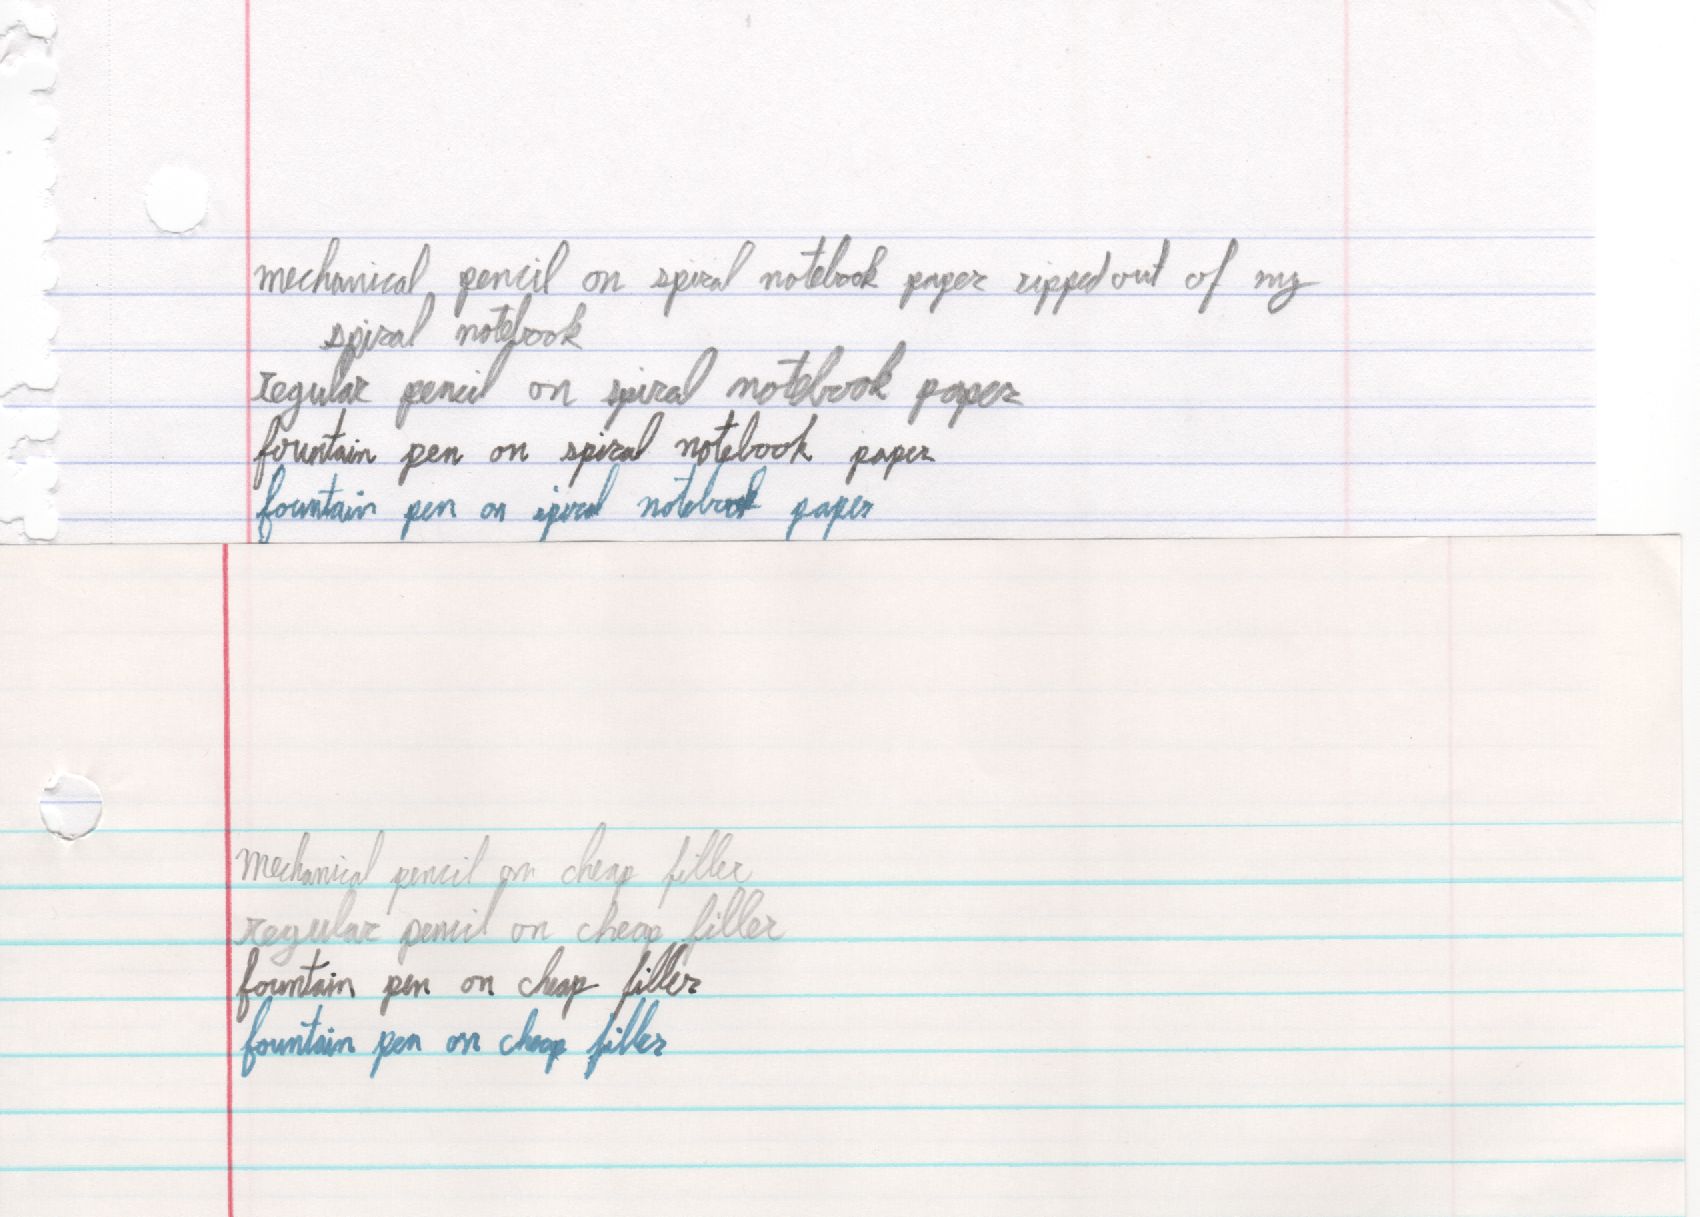 mechanical pencil on spiral notebook paper ripped out of my
spiral notebook
regular pencil on spiral notebook paper
fountain pen on spiral notebook paper
fountain pen on spiral notebook paper
Mechanical pencil on cheap filler
regular pencil on cheap filler
fountain pen on cheap filler
fountain pen on cheap filler